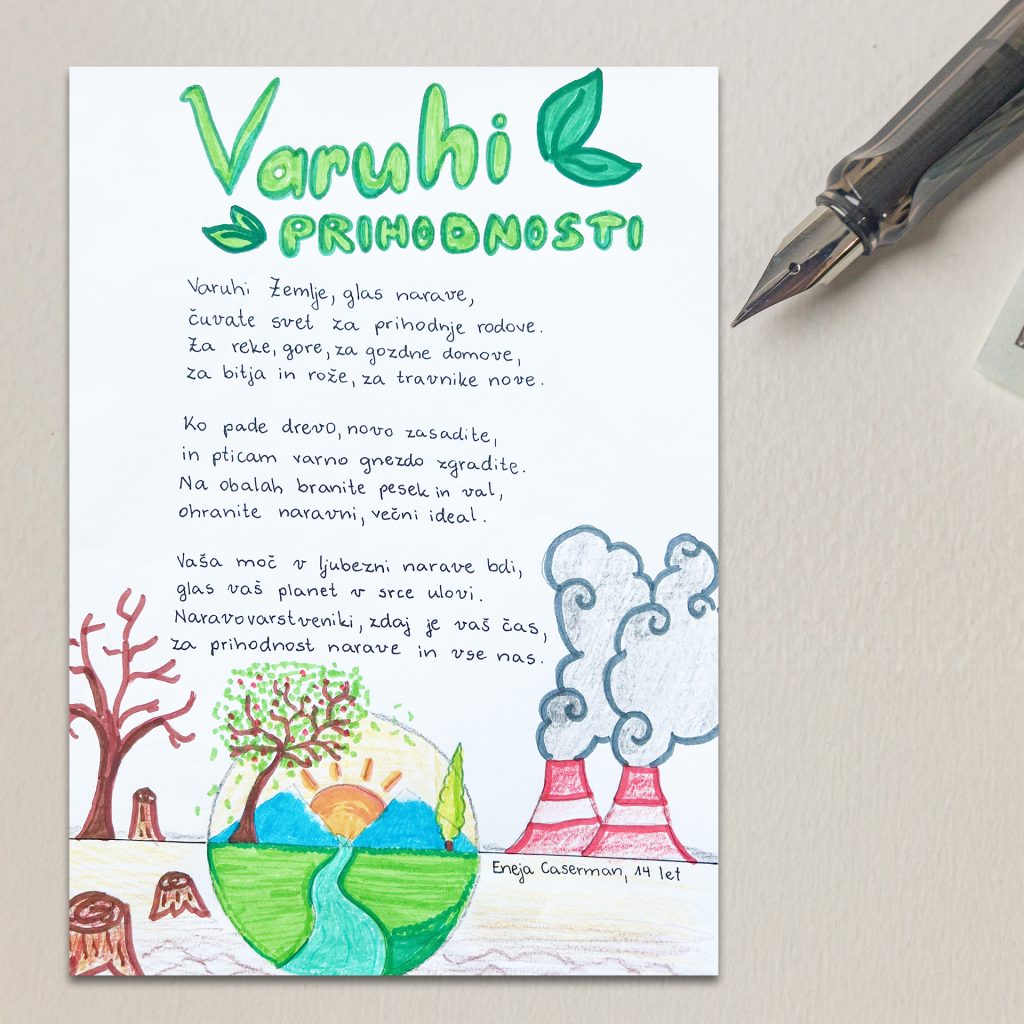 Varuhi
PRIHODNOSTI
Varuhi Zemlje, glas narave,
čuvate svet za prihodnje rodove.
Za reke, gore, za gozdne domove,
za bitja in rože, za travnike nove.
Ko pade drevo, novo zasadite,
in pticam varno gnezdo zgradite.
Na obalah branite pesek in val,
ohranite naravni, večni ideal.
Vaša moč v ljubezni narave bdi,
glas vaš planet v srce ulovi.
Naravovarstveniki, zdaj je vaš čas,
za prihodnost narave in vse nas.
Eneja Caserman, 14 let